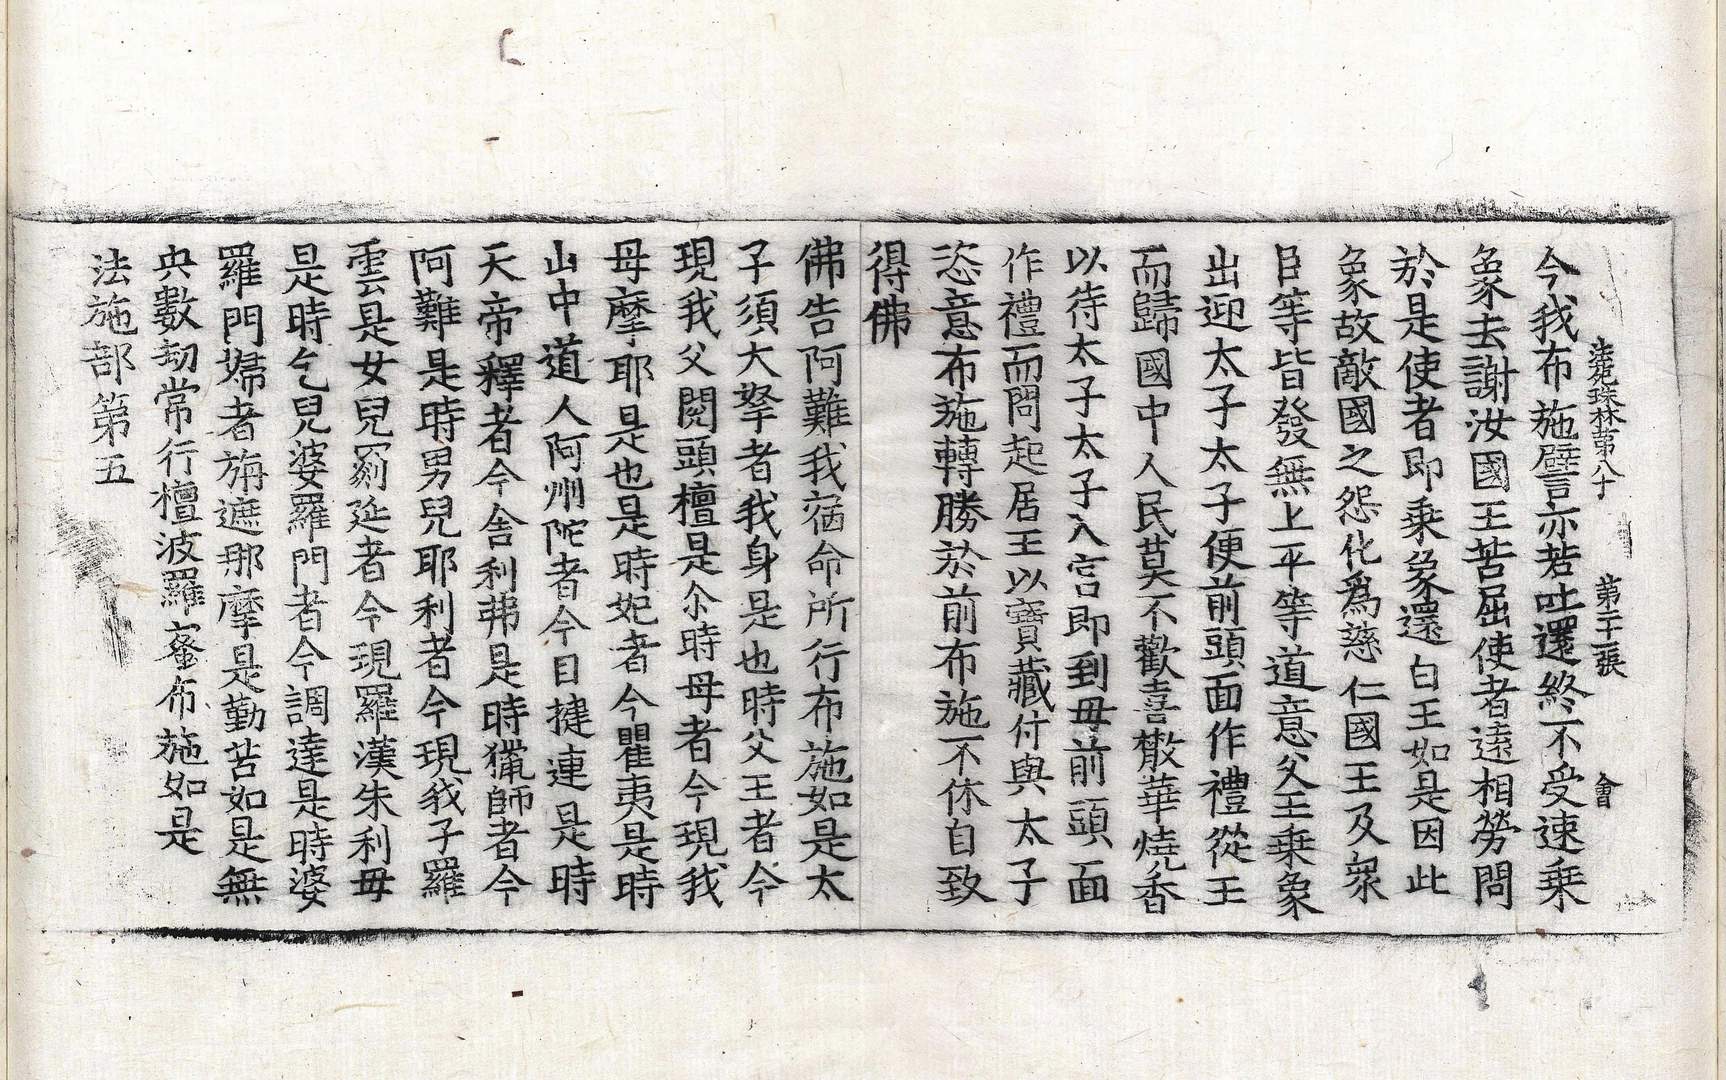 法苑珠林第八十 第二十二張 會
今我布施譬言亦若吐還終不受速乗
象去謝汝國王苦屈使者遠相勞問
於是使者即乗象還白王如是因此
象故敵國之怨化爲慈仁國王及衆
臣等皆發無上平等道意父王乗象
出迎太子太子便前頭面作禮從王
而歸國中人民莫不歡喜散華燒香
以待太子太子入宫即到毋前頭面
作禮而問起居王以寶藏付與太子
恣意布施轉勝於前布施不休自致
得佛
佛告阿難我宿命所行布施如是太
子須大拏者我身是也時父王者今
現我父閱頭檀是尒時母者今現我
母摩耶是也是時妃者今瞿夷是時
山中道人阿州陀者今目揵連是時
天帝釋者今舎利弗是時獵師者今
阿難是時男兒耶利者今現我子羅
雲是女兒罽延者今現羅漢朱利毋
是時乞兒婆羅門者今調達是時婆
羅門婦者旃遮那摩是勤苦如是無
央數劫常行檀波羅蜜布施如是
法施部第五